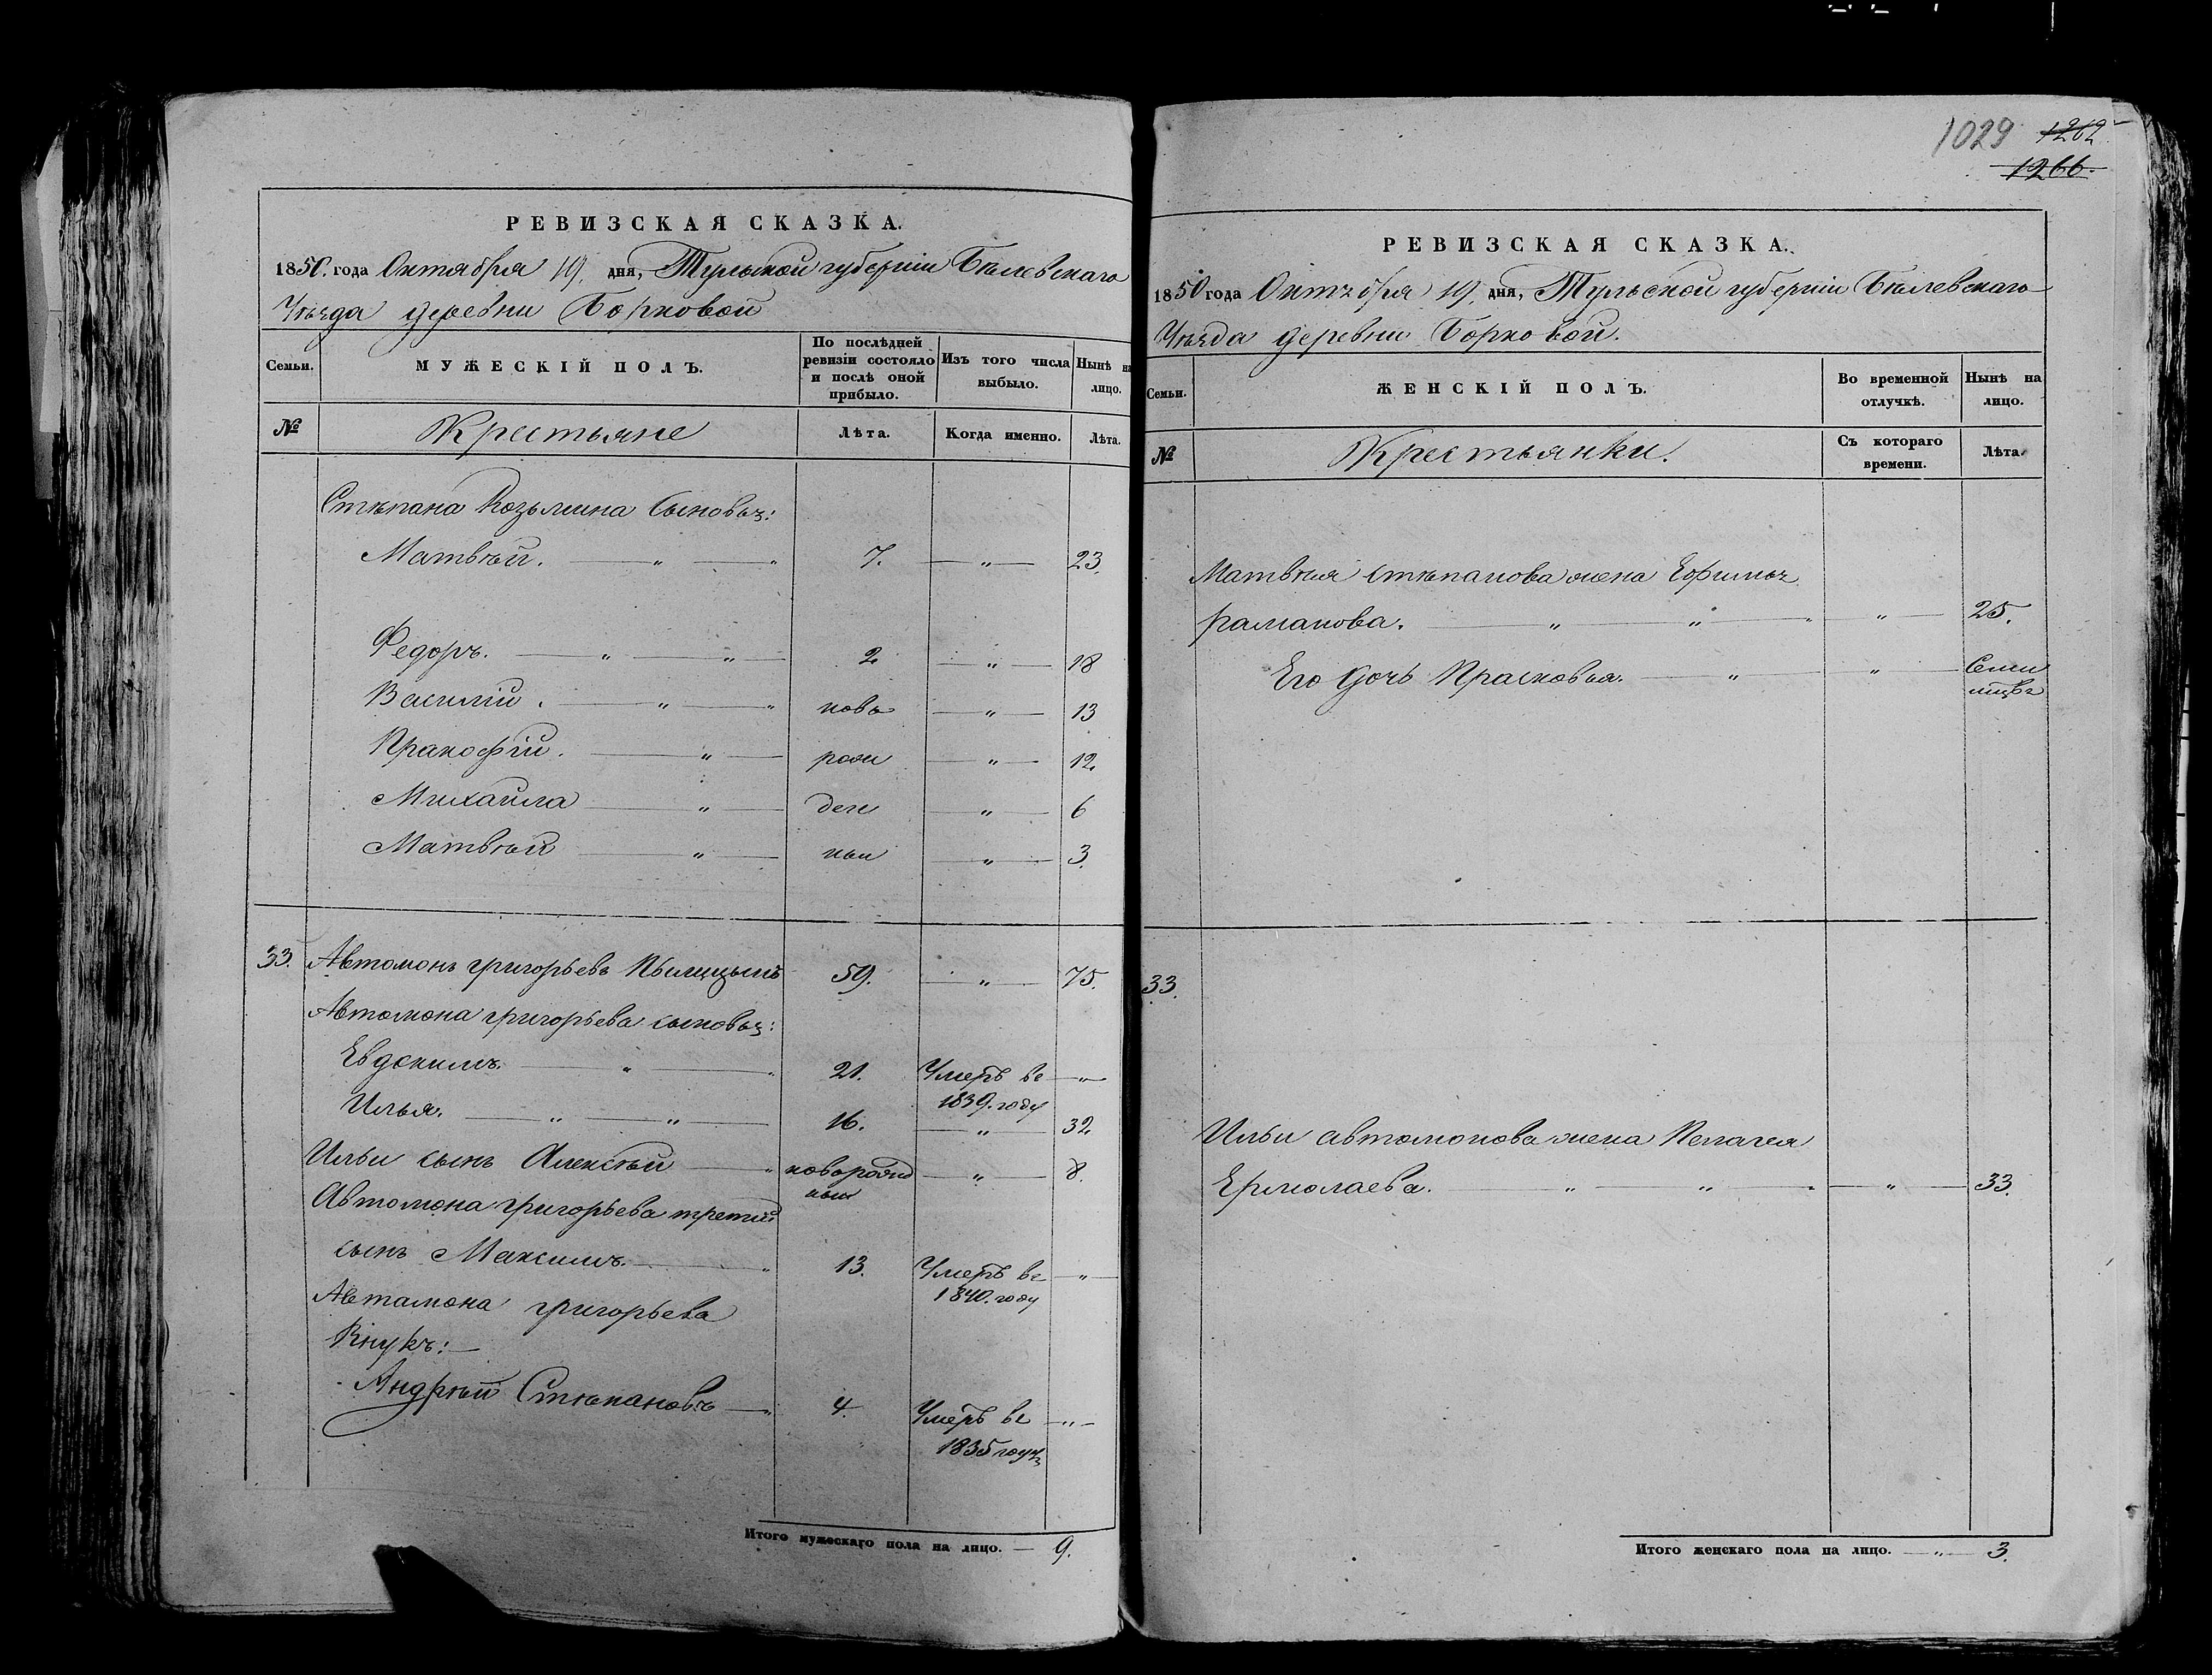 РЕВИЗСКАЯ СКАЗКА.
1850. года Октября 19. дня, Тульской губерніи Бѣлевскаго
Уѣзда деревни Борковой
Семьи.
МУЖЕСКІЙ ПОЛЪ.
По послѣдней ревизіи состояло и послѣ оной прибыло.
Изъ того числа выбыло.
Нынѣ на лицо.
№
Крестьяне
Лѣта.
Когда именно.
Лѣта.
Стѣпана Козьмина сыновья:
Матвѣй. — " — " 7. — " — 23.
Федоръ. — " — " — 2. — " — 18
Василій. — " — " ново — " — 13
Пракофій. — " — рож — " — 12.
Михаила — " — ден — " — 6
Матвѣй — " — ныи — " — 3.
33. Автомонъ григорьевъ Пылицынъ 59. — " — 75.
Автомона григорьева сыновья:
Евдокимъ. — " — " 21. Умеръ ве — " —
1839. году
Илья. — " — " — 16. — " — 32.
Ильи сынъ Алексѣй — " новорожд — " — 8.
ныи
Автомона григорьева третий
сынъ Максимъ. — " 13. Умеръ ве — " —
1840. году
Автамона григорьева
Внукъ: —
Андрѣй Стѣпановъ — " 4. Умеръ ве — " —
1835 году
Итого мужескаго пола на лицо. — 9.
1029 1262
1266.
РЕВИЗСКАЯ СКАЗКА.
1850 года Октября 19. дня, Тульской губерніи Бѣлевскаго
Уѣзда деревни Борковой.
Семьи.
ЖЕНСКІЙ ПОЛЪ.
Во временной отлучкѣ.
Нынѣ на лицо.
№
Крестьянки.
Съ котораго времени.
Лѣта.
Матвѣя стѣпанова жена Ефимья
раманова. — " — " — " — " — 25.
Его дочь Прасковья. — " — " — Семи
33.
Ильи автомонова жена Пелагея
Ермолаева. — " — " — " — " — 33.
Итого женскаго пола на лицо. — " — 3.